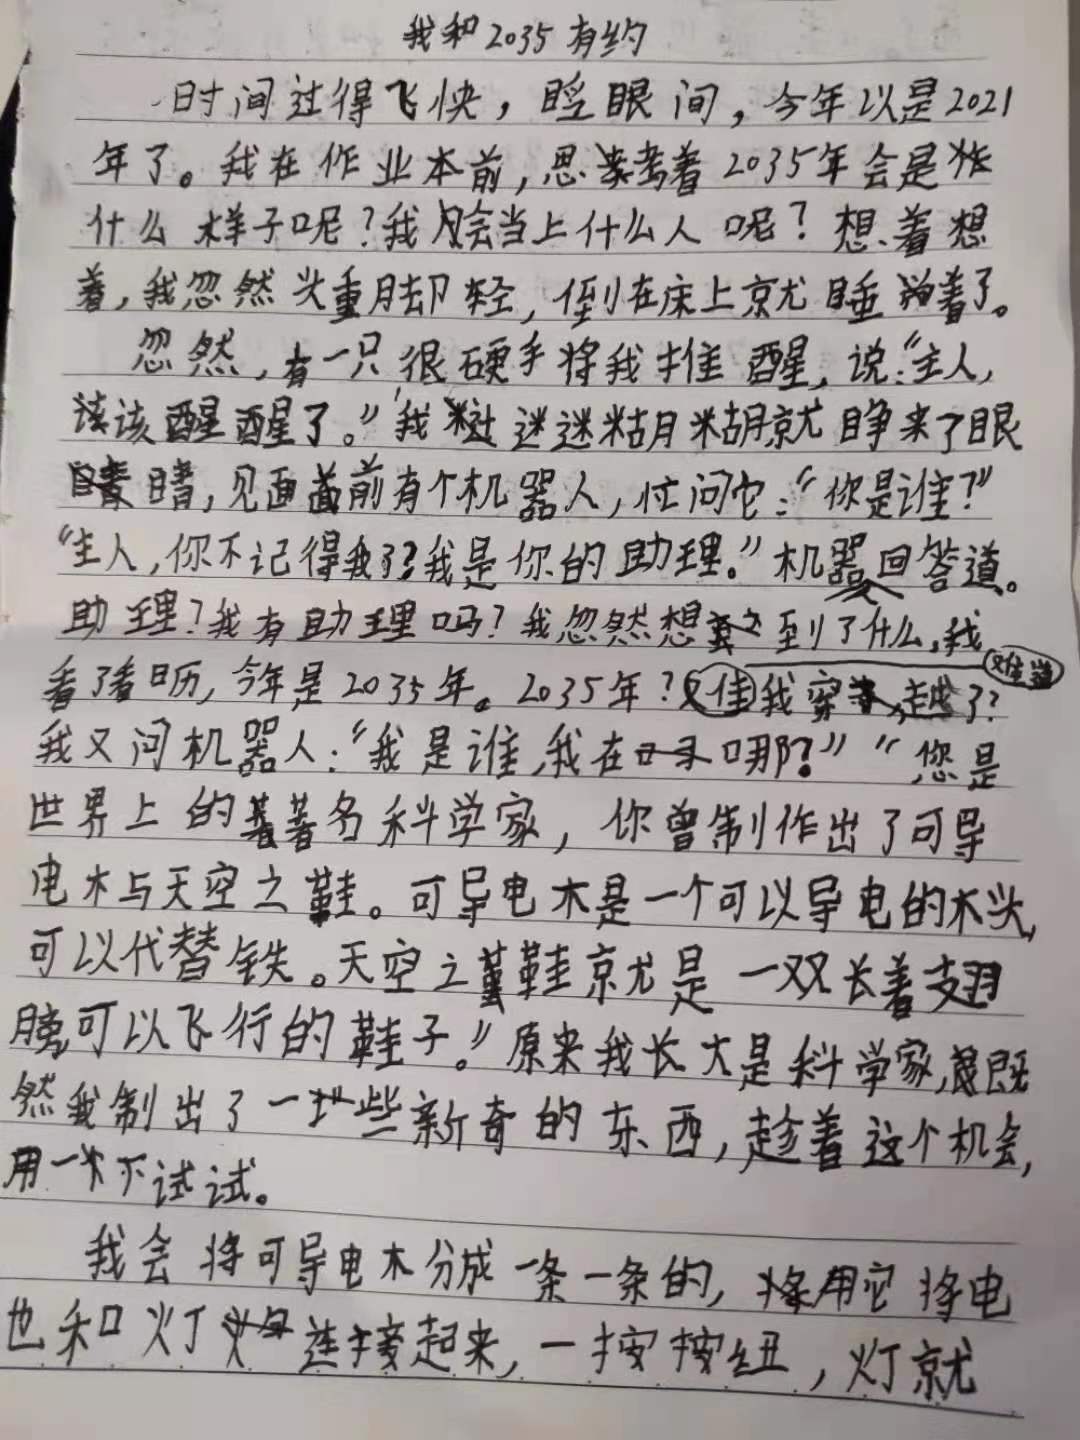 我和2035有约
时间过得飞快，眨眼间，今年以是2021
年了。我在作业本前，思考着2035年会是
什么样子呢？我会当上什么人呢？想着想
着，我忽然头重脚轻，倒在床上就睡着了。
忽然，有一只很硬手将我推醒，说：“主人，
该该醒醒了。”我迷迷糊糊就睁来了眼
睛，见面前有个机器人，忙问它：“你是谁？”
“主人，你不记得我了？我是你的助理。”机器回答道。
助理？我有助理吗？我忽然想到了什么，我
看了看日历，今年是2035年。2035年？难道我穿越了？
我又问机器人：“我是谁，我在哪？”“您是
世界上的著名科学家，你曾制作出了可导
电木与天空之鞋。可导电木是一个可以导电的木头，
可以代替铁。天空之鞋就是一双长着翅
膀可以飞行的鞋子。”原来我长大是科学家，既
然我制出了一些新奇的东西，趁着这个机会，
用一下试试。
我会将可导电木分成一条一条的，用它将电
也和灯连接起来，一按按纽，灯就